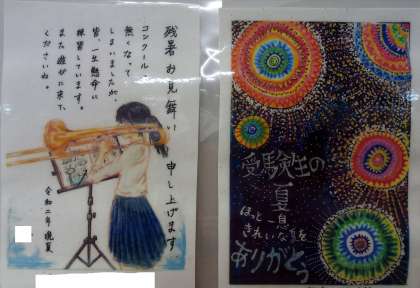 残暑お見舞い 申し上げます。
コンクールが
無くなって
しまいましたが、
皆、一生懸命に
練習しています。
また に来て
くださいね。
令和二年 晩夏
受験生の
夏
ほっと一息
きれいな を
ありがとう